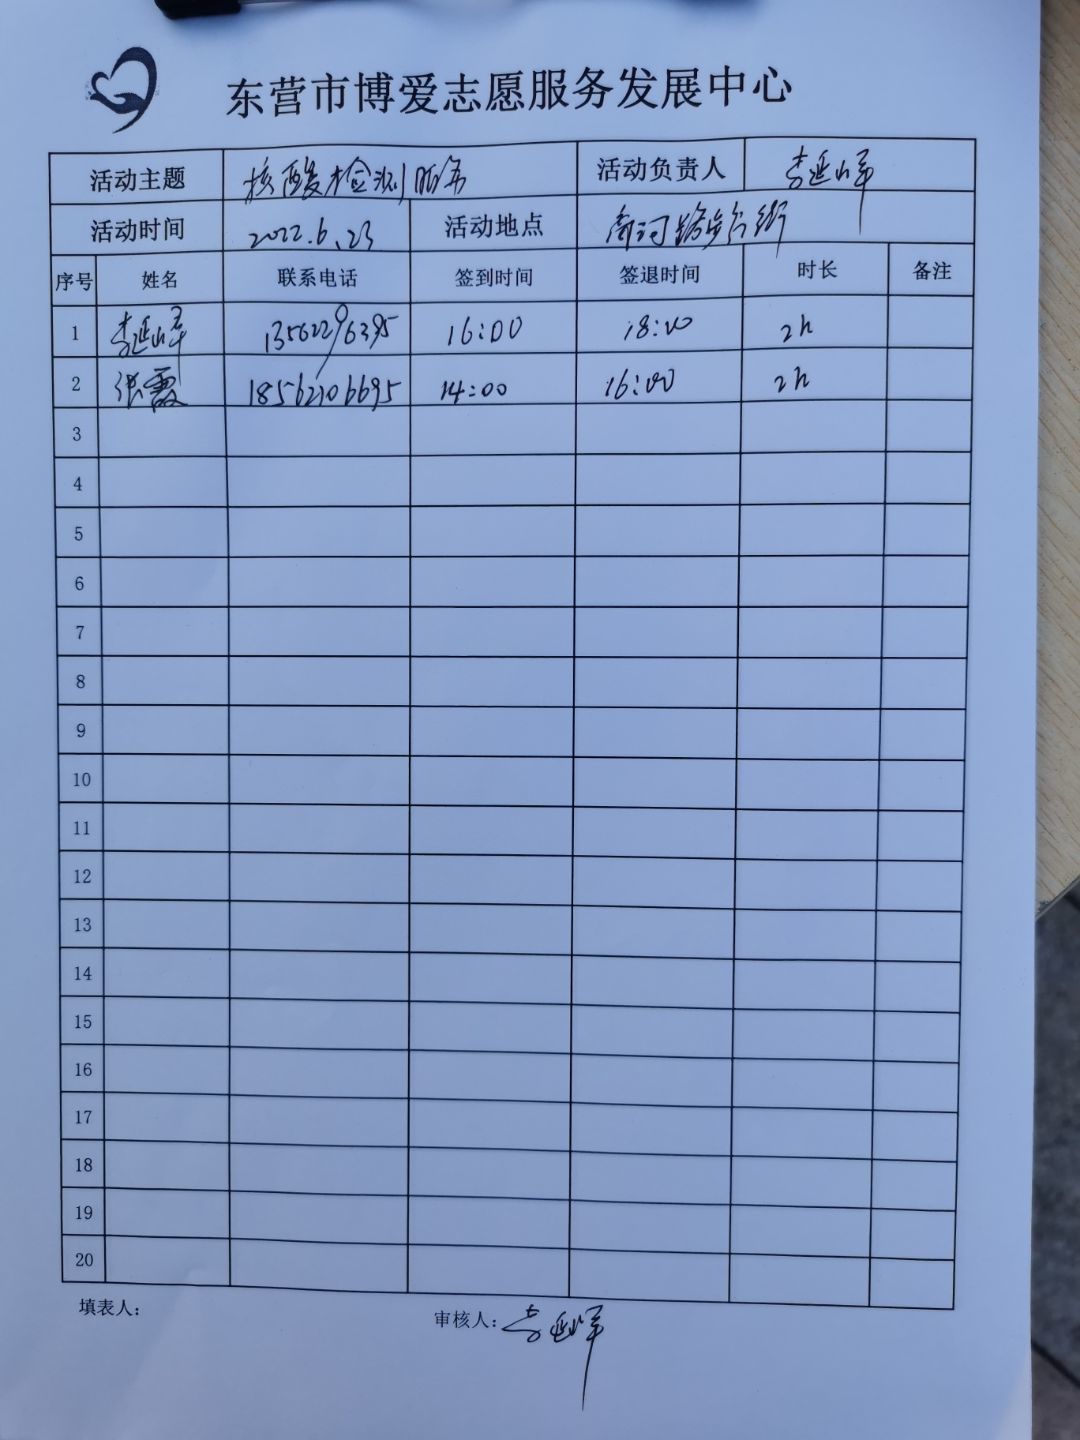 东营市博爱志愿服务发展中心
活动主题 核酸检测服务 活动负责人 李延峰
活动时间 2022.6.23 活动地点 商河路步行街
序号 姓名 联系电话 签到时间 签退时间 时长 备注
1 李延峰 13562296395 16:00 18:00 2h
2 张霞 18562106695 14:00 16:00 2h
3
4
5
6
7
8
9
10
11
12
13
14
15
16
17
18
19
20
填表人: 审核人: 李延峰